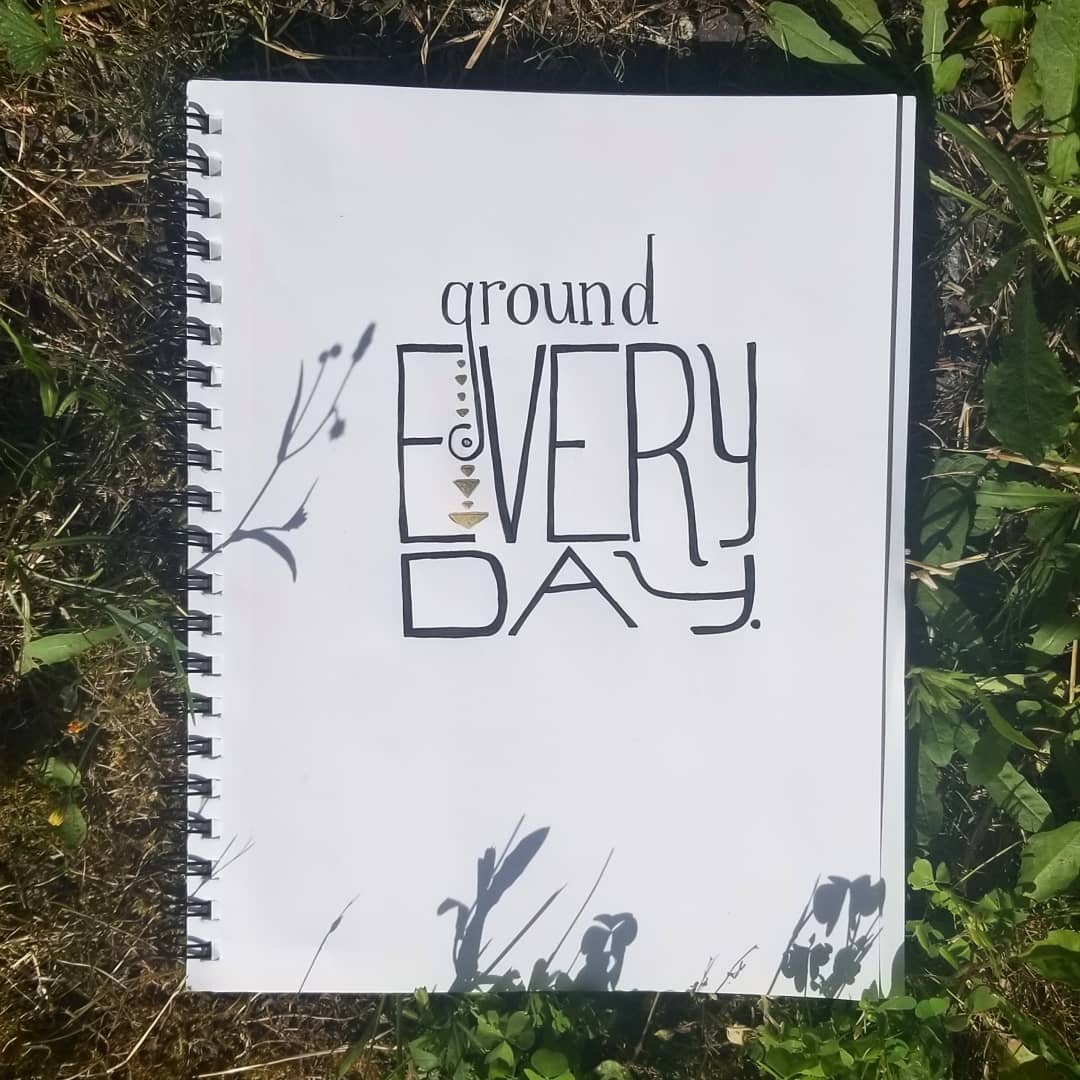 ground
EVERY
DAY.